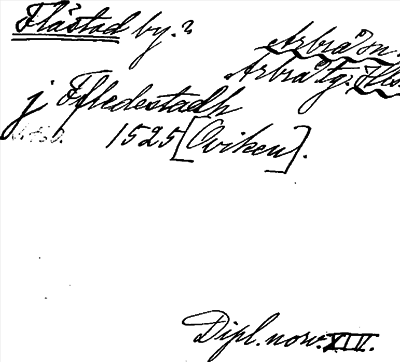 Flåstad by.?
Arbrå sn.
Arbrå tg.
j Ffledestadh
1525 [Oviken].
Dipl. norv. XIV.